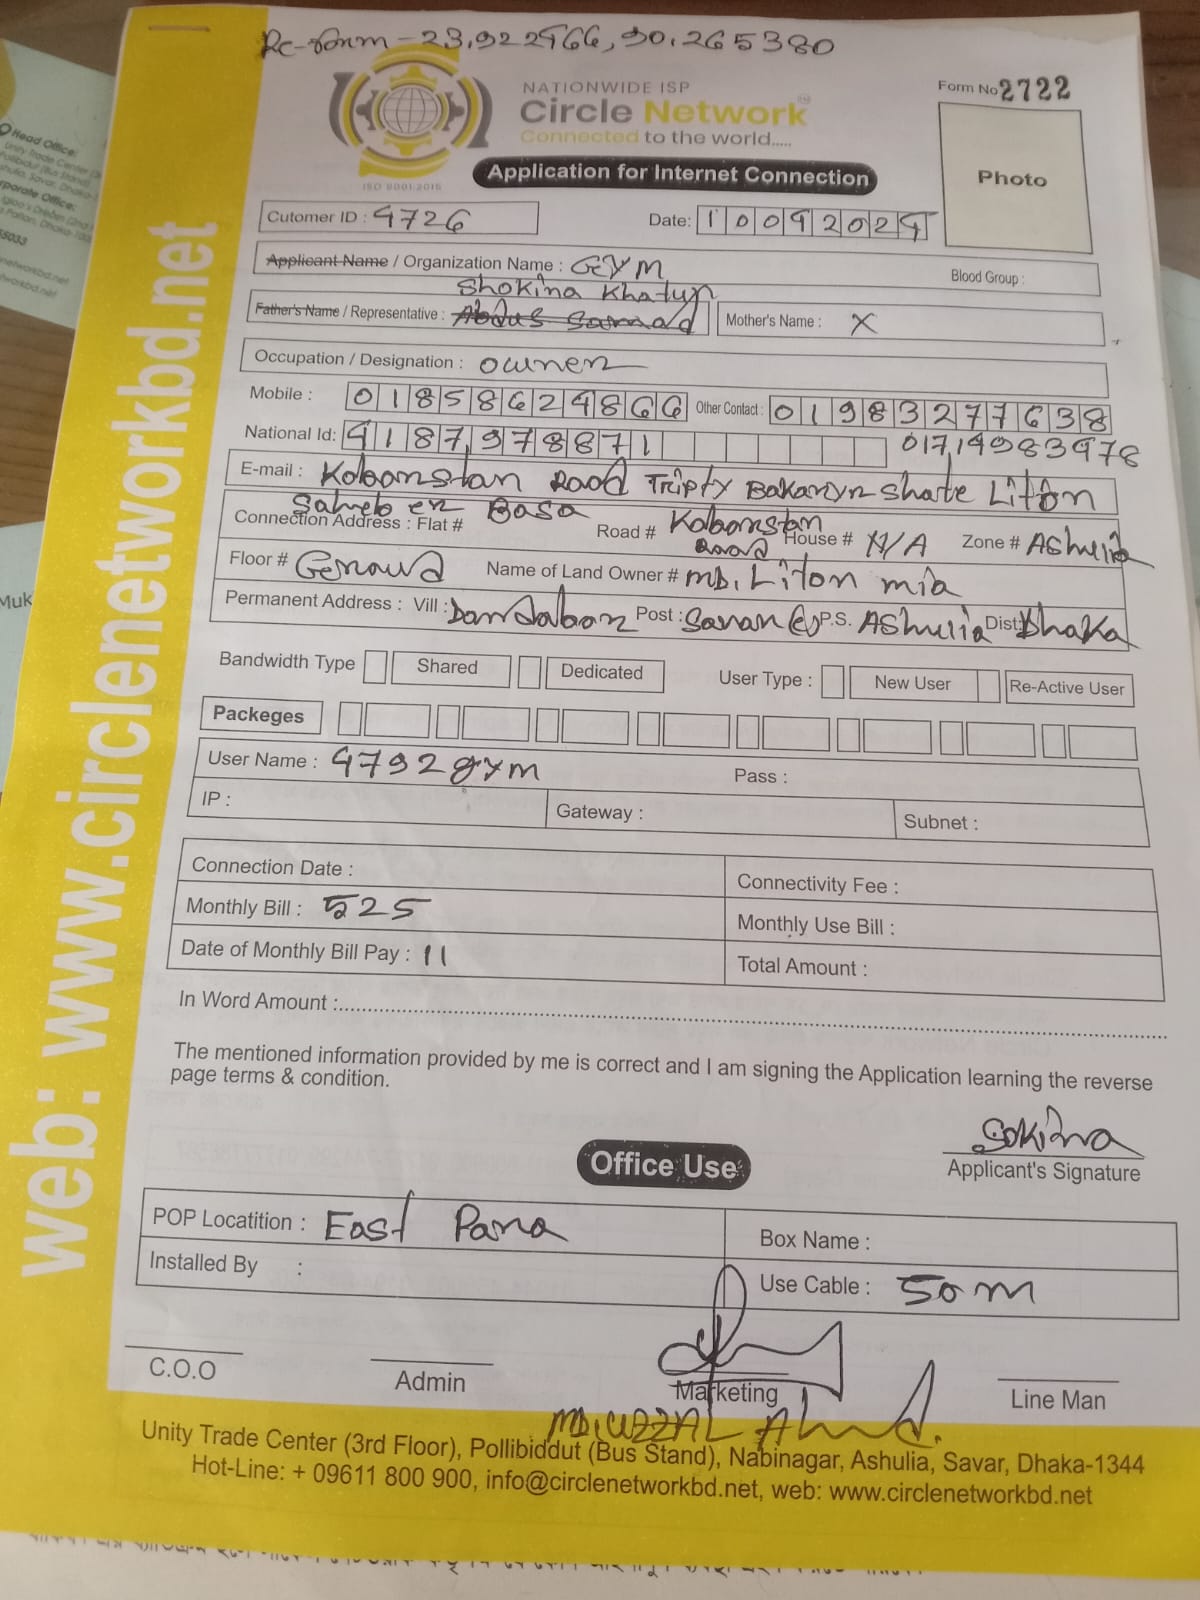 Rc-form - 23.922466, 90.265380
NATIONWIDE ISP
Circle Network
Connected to the world.....
ISO 9001:2015
Form No 2722
Photo
Application for Internet Connection
Cutomer ID : 4726
Date: 10092024
Applicant Name / Organization Name : GYM
Blood Group :
Shokina Khatun
Father's Name / Representative : Abdus Samad
Mother's Name : X
Occupation / Designation : owner
Mobile : 01858624866 Other Contact : 01983277638
National Id: 4187978871 01714983978
E-mail : Kobonstan Road Tripty Bakaryr Shate Liton
Saheb er Basa
Connection Address : Flat # Road # Kobonstan Road House # N/A Zone # Ashulia
Floor # Geraund Name of Land Owner # MD. Liton mia
Permanent Address : Vill : Dandabor Post : Savar P.S. Ashulia Dist: Dhaka
Bandwidth Type Shared Dedicated User Type : New User Re-Active User
Packeges
User Name : 4792gym Pass :
IP : Gateway : Subnet :
Connection Date : Connectivity Fee :
Monthly Bill : 525 Monthly Use Bill :
Date of Monthly Bill Pay : 11 Total Amount :
In Word Amount :
The mentioned information provided by me is correct and I am signing the Application learning the reverse
page terms & condition.
Sokina
Applicant's Signature
Office Use
POP Locatition : East Para Box Name :
Installed By : Use Cable : 50m
C.O.O Admin Marketing Line Man
MD. UZZAL Ahmed.
Unity Trade Center (3rd Floor), Pollibiddut (Bus Stand), Nabinagar, Ashulia, Savar, Dhaka-1344
Hot-Line: + 09611 800 900, info@circlenetworkbd.net, web: www.circlenetworkbd.net
web: www.circlenetworkbd.net
Head Office:
Unity Trade Center